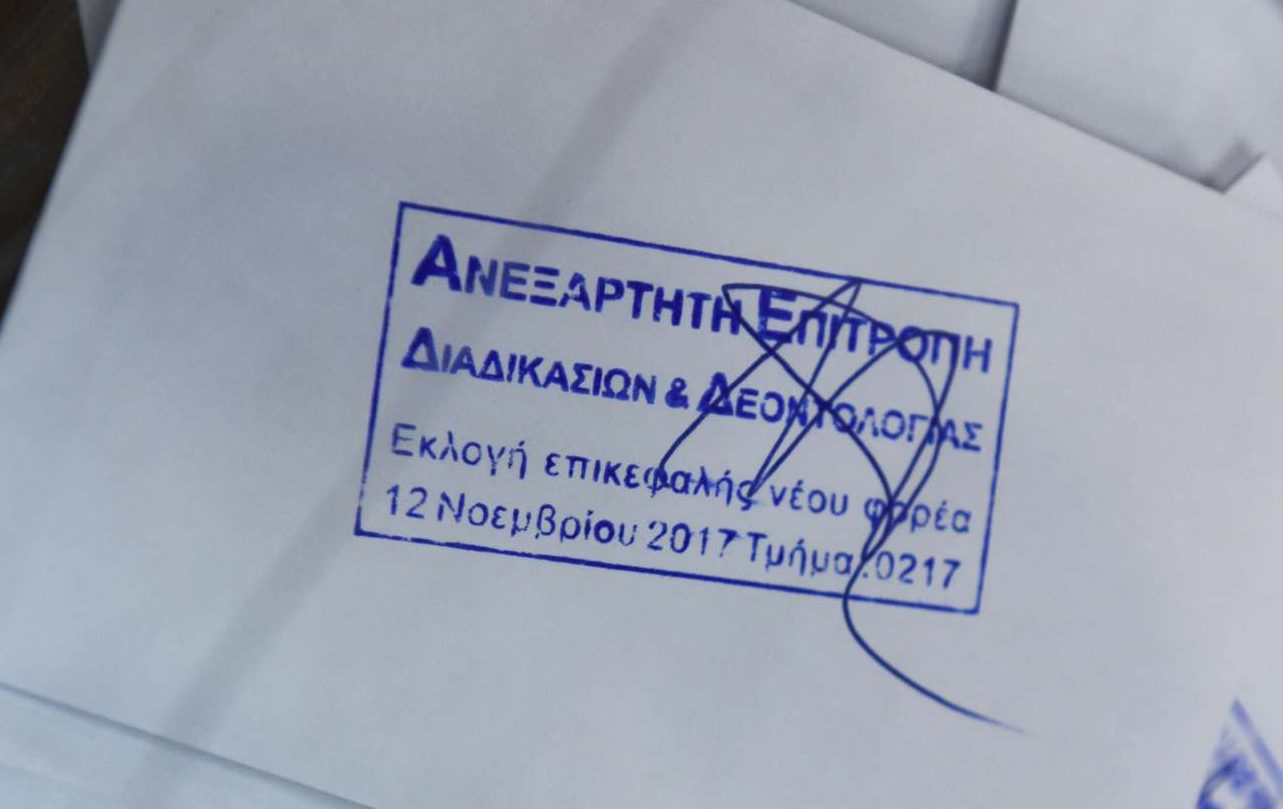 ΑΝΕΞΑΡΤΗΤΗ ΕΠΙΤΡΟΠΗ
ΔΙΑΔΙΚΑΣΙΩΝ & ΔΕΟΝΤΟΛΟΓΙΑΣ
Εκλογή επικεφαλής νέου φορέα
12 Νοεμβρίου 2017 Τμήμα:0217